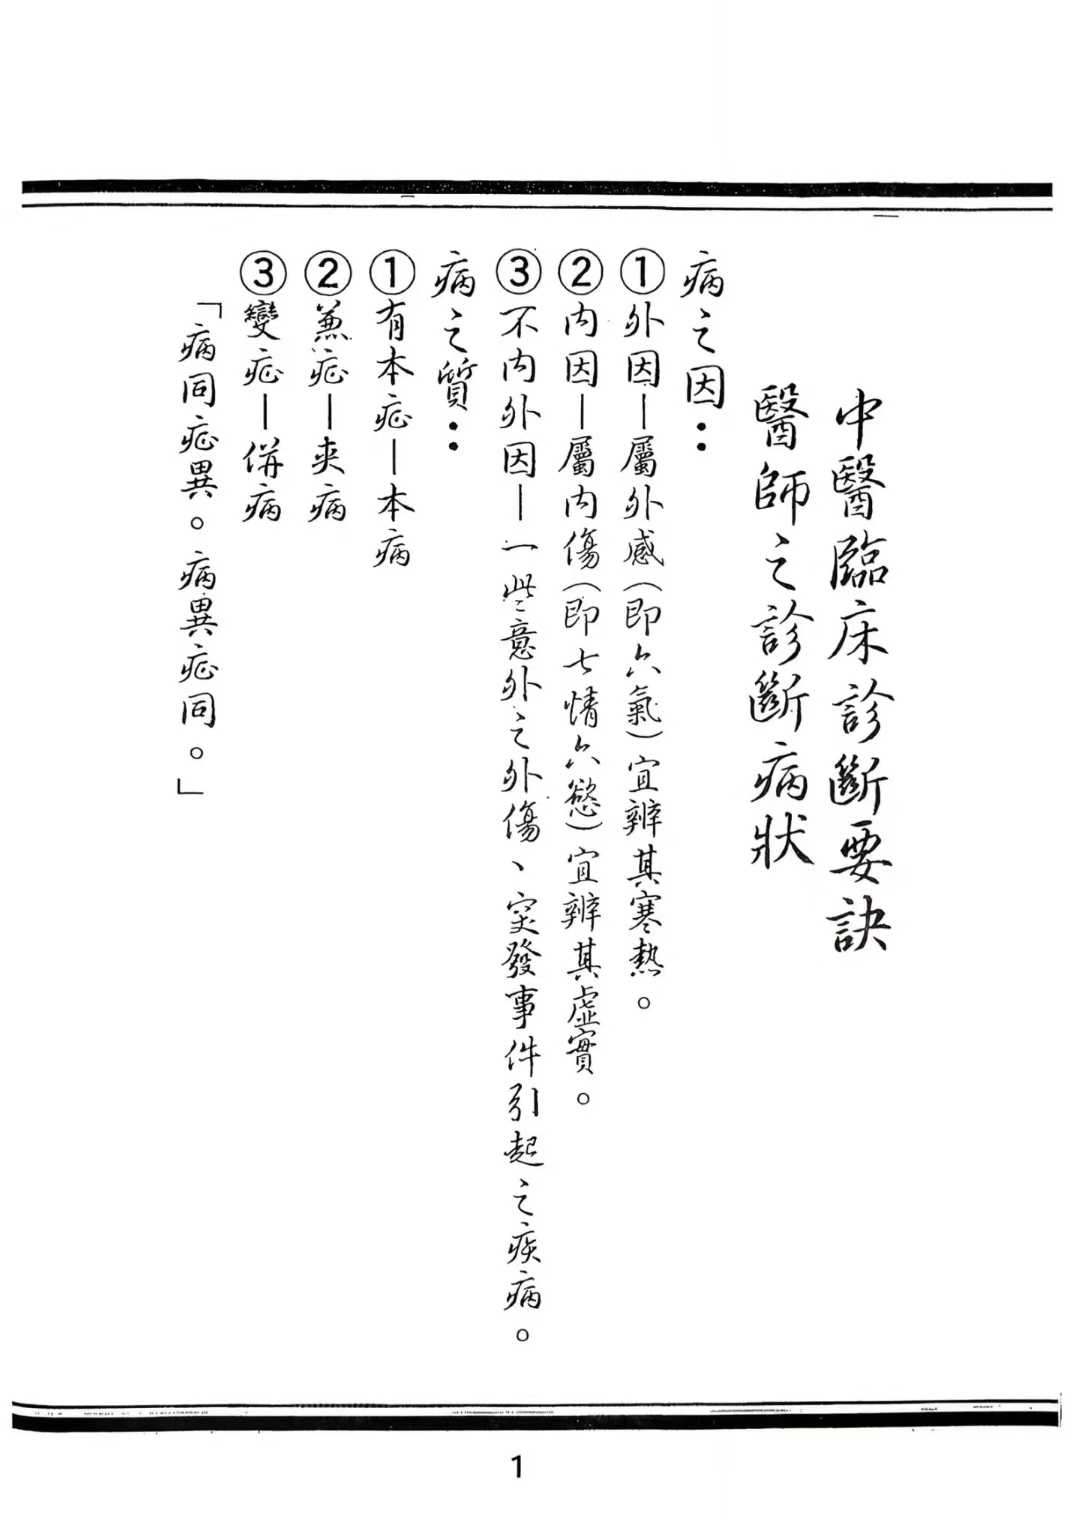 中醫臨床診斷要訣
醫師之診斷病狀
病之因：
①外因—屬外感(即六氣)宜辨其寒熱。
②內因—屬內傷(即七情六慾)宜辨其虛實。
③不內外因—一些意外之外傷、突發事件引起之疾病。
病之質：
①有本症—本病
②兼症—夾病
③變症—併病
「病同症異。病異症同。」
1